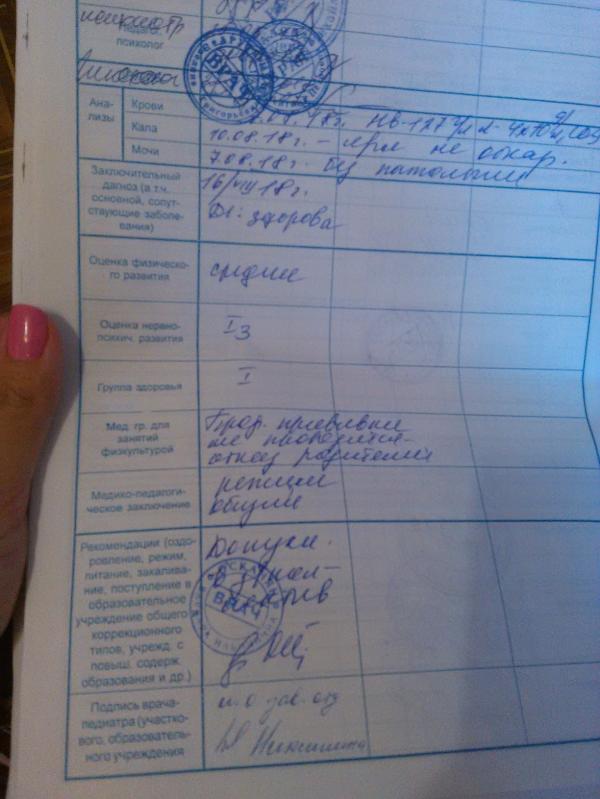 Педагог,
психолог
ВРАЧ
Ана-
лизы
Крови
7.08.18г. Нв-127 г/л
Кала
10.08.18г. - я/гл не обнар.
Мочи
7.08.18г. без патологии
Заключительный
диагноз (в т.ч.
основной, сопут-
ствующие заболе-
вания)
16/VIII 18г.
Ds: здорова
Оценка физическо-
го развития
среднее
Оценка нервно-
психич. развития
I
Группа здоровья
I
Мед. гр. для
занятий
физкультурой
Проф. прививки
не проводятся-
отказ родителей
Медико-педагоги-
ческое заключение
режим
общий
Рекомендации (оздо-
ровление, режим,
питание, закалива-
ние, поступление в
образовательное
учреждение общего
коррекционного
типов, учрежд. с
повыш. содерж.
образования и др.)
ВРАЧ
Подпись врача-
педиатра (участко-
вого, образователь-
ного учреждения
и.о зав. отд
Никитина